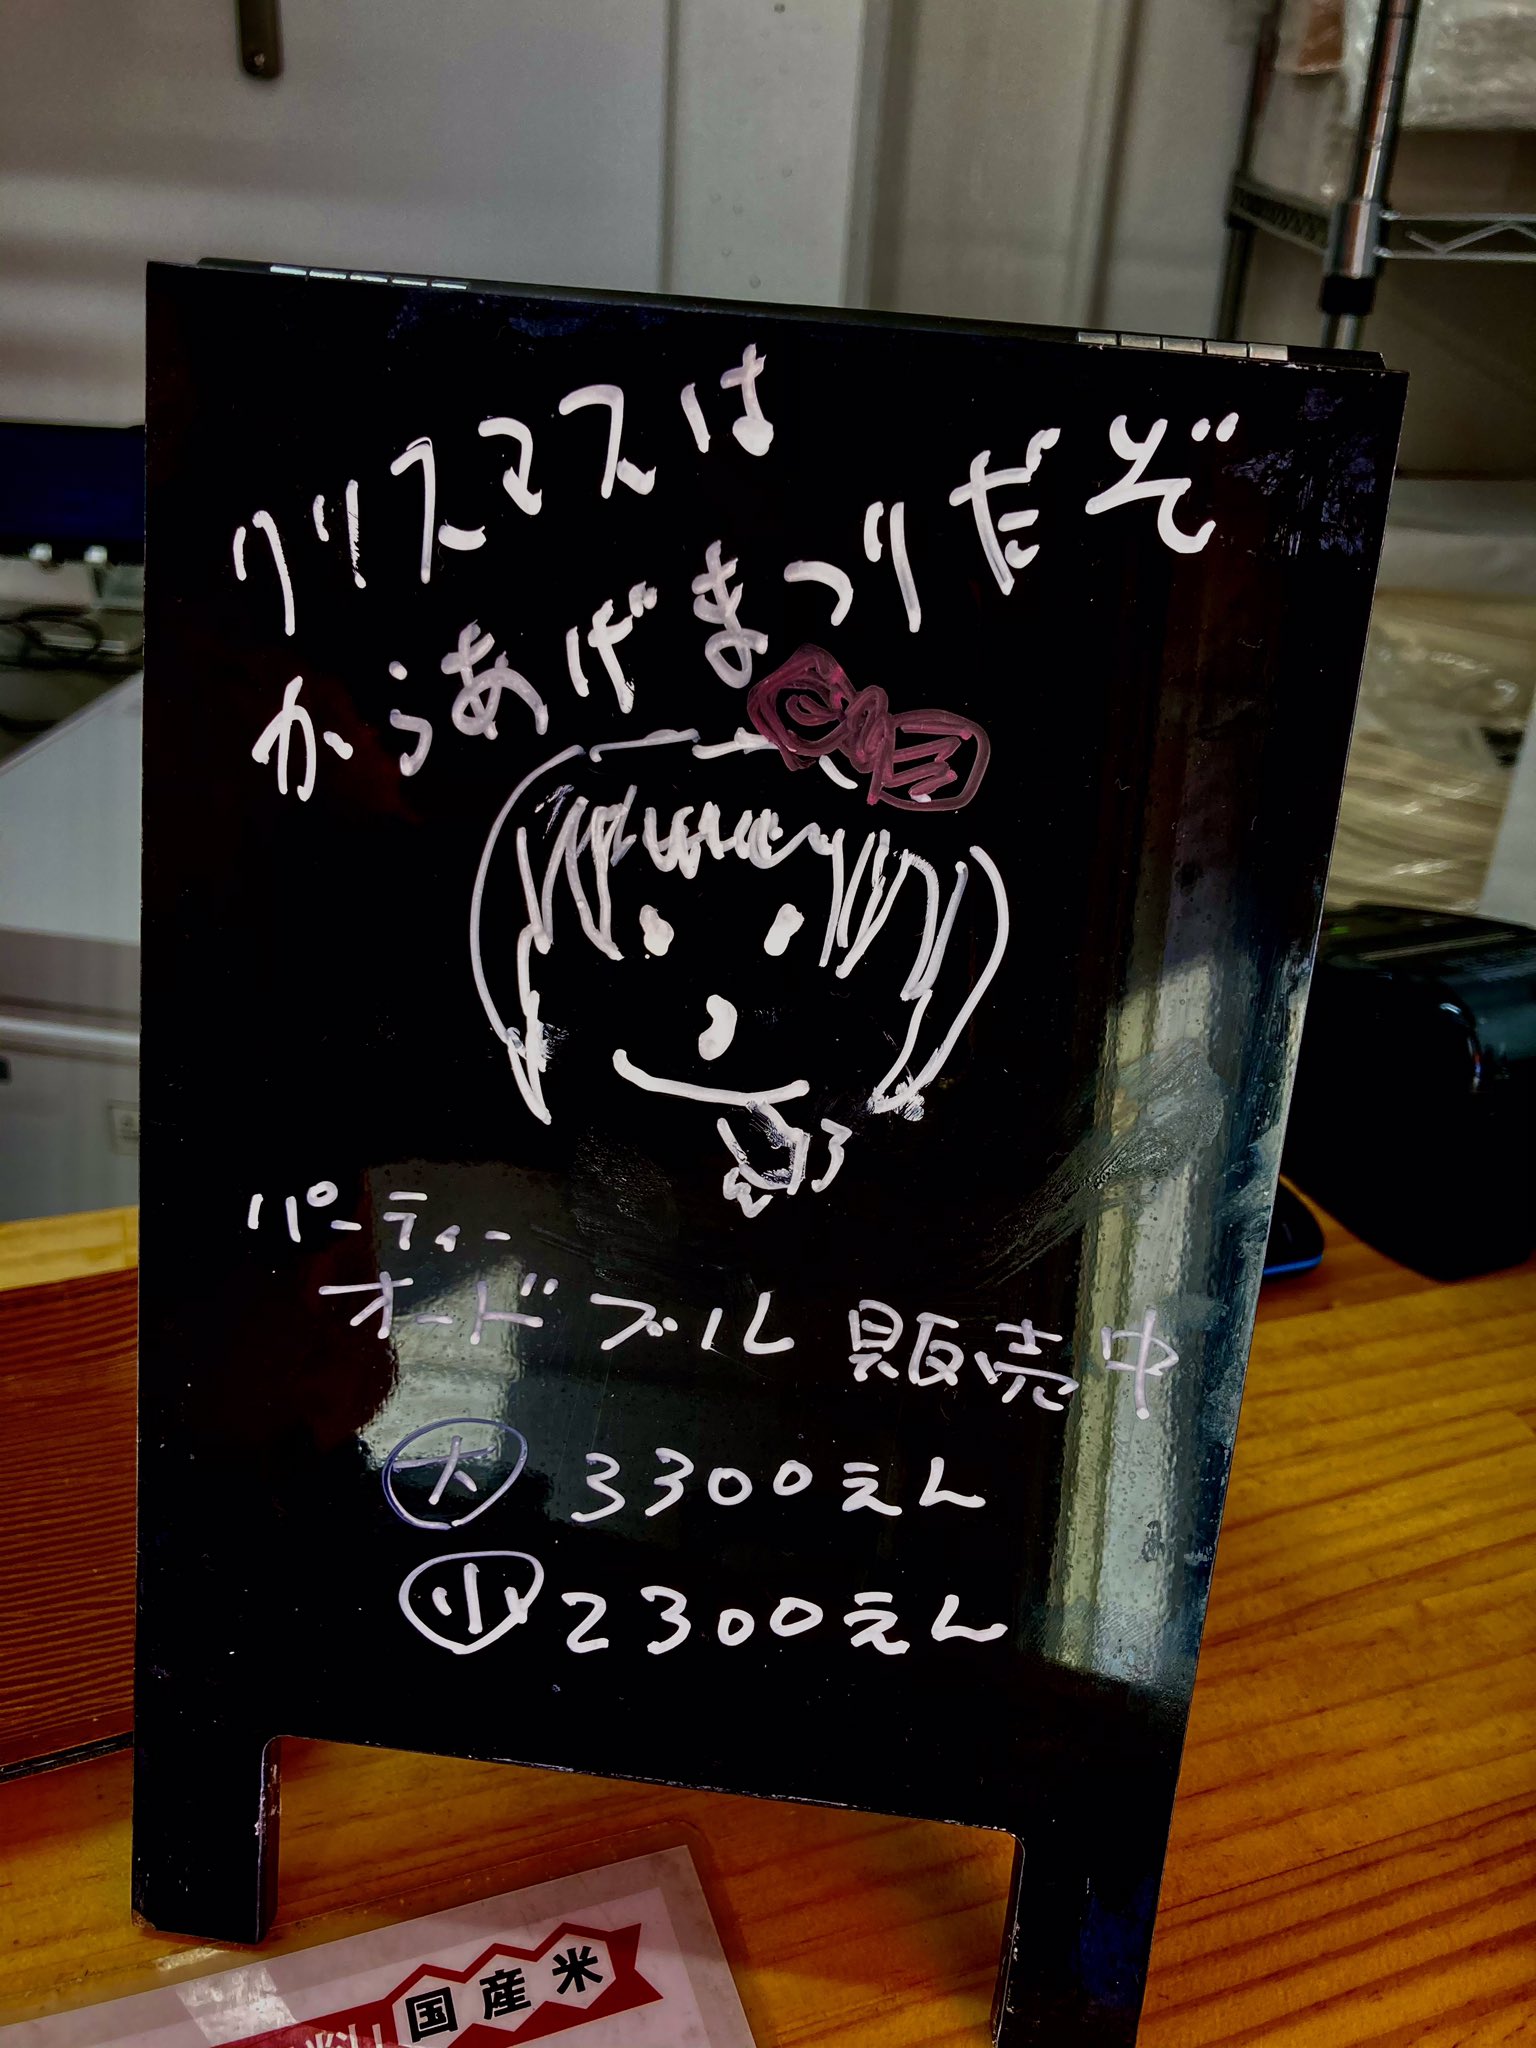 クリスマスは
からあげまつりだぞ
パーティー
オードブル 販売中
大 3300えん
小 2300えん
国産米